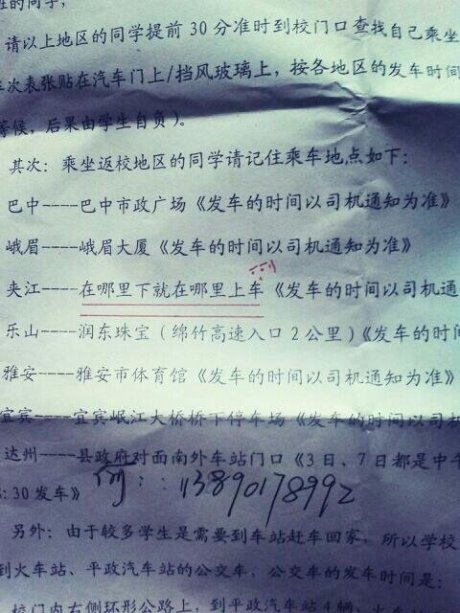 的同学，
请以上地区的同学提前30分准时到校门口查找自己乘坐
车次表张贴在汽车门上/挡风玻璃上，按各地区的发车时间
等候，后果由学生自负）。
其次：乘坐返校地区的同学请记住乘车地点如下：
巴中----巴中市政广场《发车的时间以司机通知为准》
峨眉----峨眉大厦《发车的时间以司机通知为准》
夹江----在哪里下就在哪里上车《发车的时间以司机通
乐山----润东珠宝（绵竹高速入口2公里）《发车的时间
雅安----雅安市体育馆《发车的时间以司机通知为准》
宜宾----宜宾岷江大桥桥下停车场《发车的时间以司机
达州----县政府对面南外车站门口《3日、7日都是中午
8:30发车》
13890178992
另外：由于较多学生是需要到车站赶车回家，所以学校
到火车站、平政汽车站的公交车，公交车的发车时间是：
校门内右侧环形公路上，到平政汽车站4辆